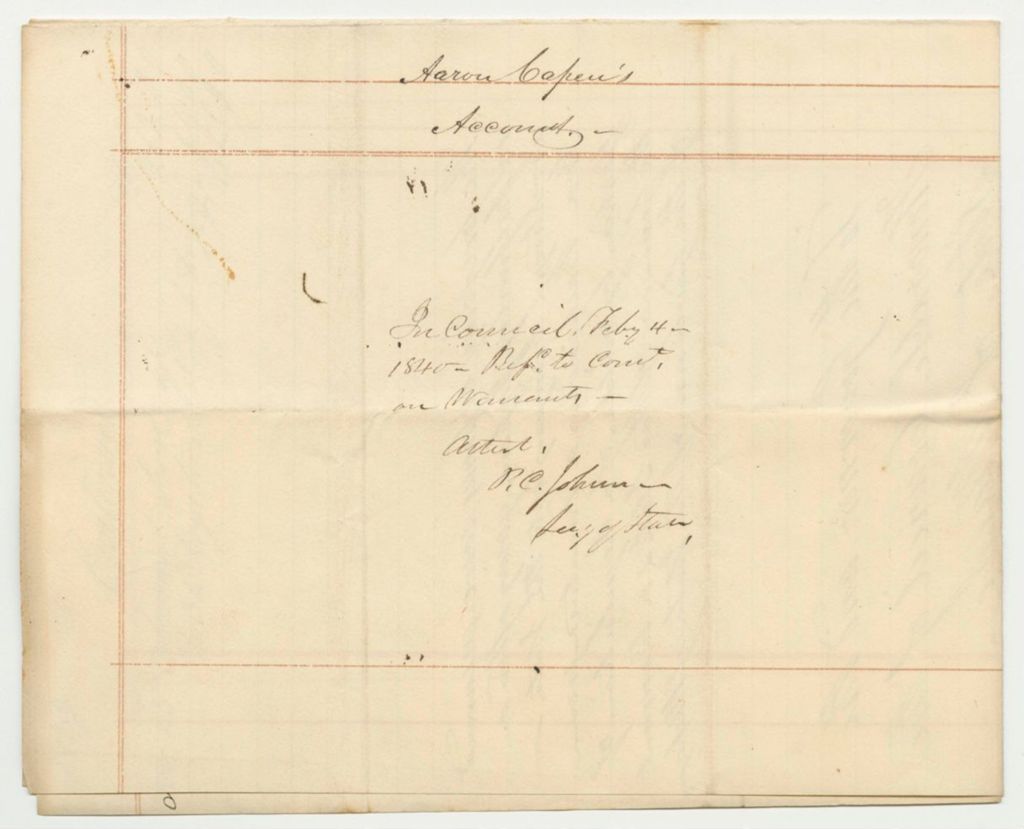 Aaron Capen's
Account. –
In Council. Feby 4 –
1840 – Refd. to Comt.
on Warrants –
Attest.
P. C. Johnson
Secy of State,